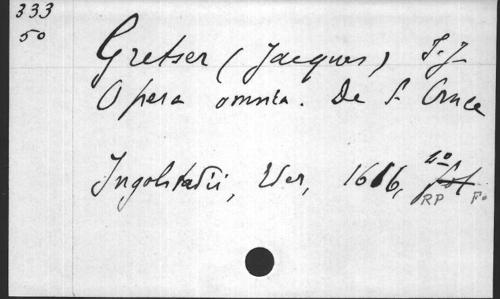 333
50
Gretser (Jacques) S.J.
Opera omnia. De S. Cruce
Ingolstadii, Eder, 1616, 2º fol
RP Fo